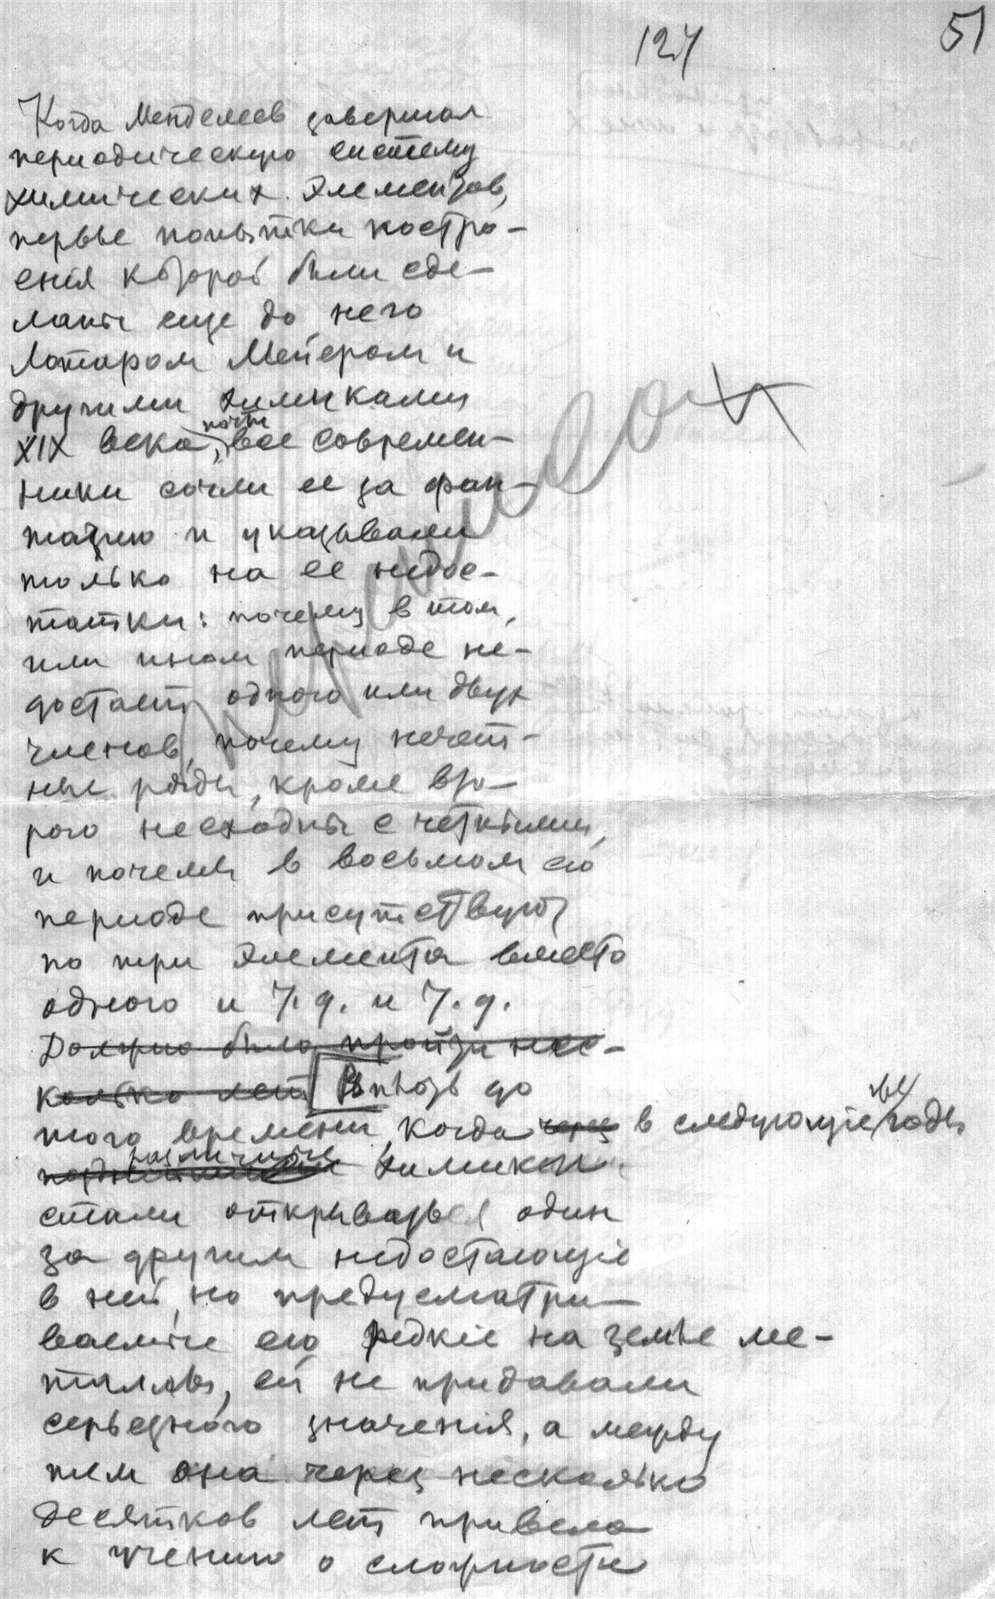 124 51
Когда Менделеев завершал
периодическую систему
химических элементов,
первые попытки построе-
ения которой были сде-
ланы еще до него
Лотаром Мейером и
другими химиками
XIX века, почти все современ-
ники сочли ее за фан-
тазию и указывали
только на ее недос-
татки: почему в том,
или ином периоде не-
достает одного или двух
членов, почему нечет-
ные ряды, кроме вто-
рого несходны с четными,
и почему в восьмом его
периоде присутствуют
по три элемента вместо
одного и т.д. и т.д.
Должно было пройти нес-
колько лет Вплоть до
того времени, когда через в следующие годы
различные химики
стали открывать один
за другим недостающіе
в ней, но предусматри-
ваемые ею редкіе на земле ме-
таллы, ей не придавали
серьезного значенія, а между
тем она через несколько
десятков лет привела
к учению о сложности